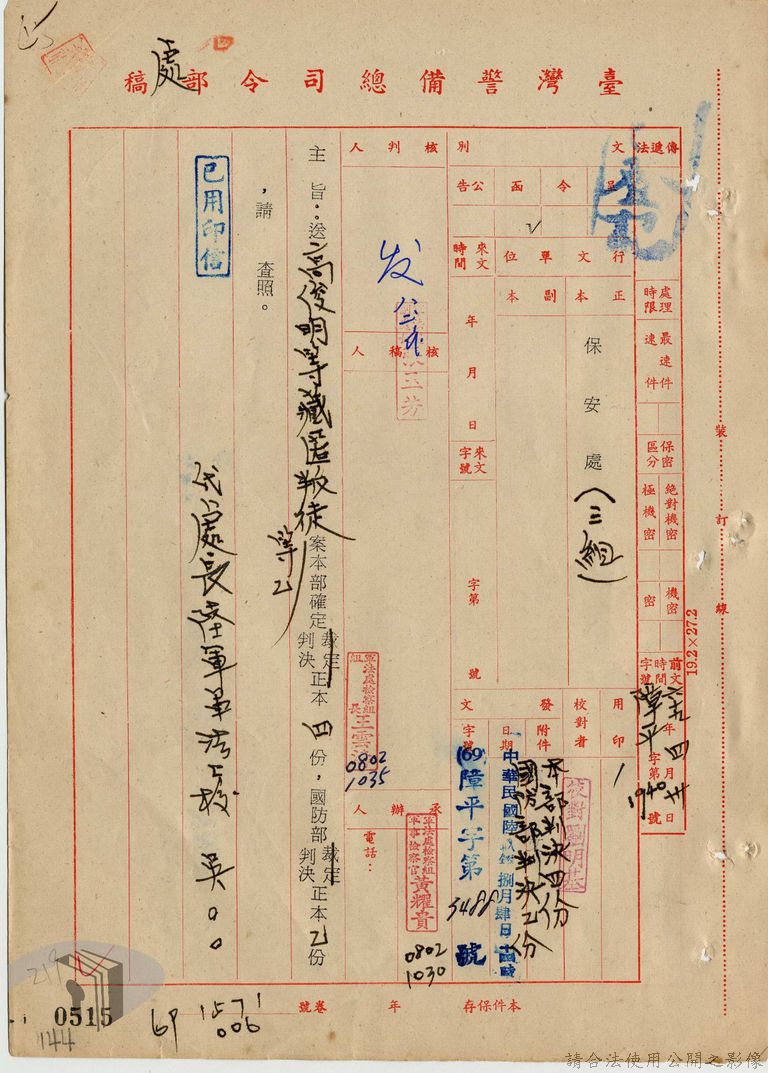 處
臺灣警備總司令部稿
傳遞法
處理時限
最速件
速件
保密區分
絕對機密
極機密
機密
密
前文時間字號
六九年四月卅日
障平字第1940號
文別
呈
令
函
公告
行文單位
正本
副本
保安處(三組)
來文時間
年月日
來文字號
字第號
發文
用印
校對者
校對劉明基
附件
本部判決四份
國防部判決乙份
日期
中華民國陸拾玖年捌月肆日
字號
(69)障平字第5488號
核判人
发
核稿人
軍法處檢察組組長王雲濤
0802
1035
承辦人
軍法處檢察組軍事檢察官黃耀貴
0802
1030
電話:
主旨:送高俊明等藏匿叛徒等乙案本部確定裁定判決正本四份,國防部裁定判決正本乙份
,請查照。
已用印信
代處長陸軍軍法上校吳○○
本件保存
年
卷號
裝訂線
19.2×27.2
219
0515
144
1571
006
請合法使用公開之影像